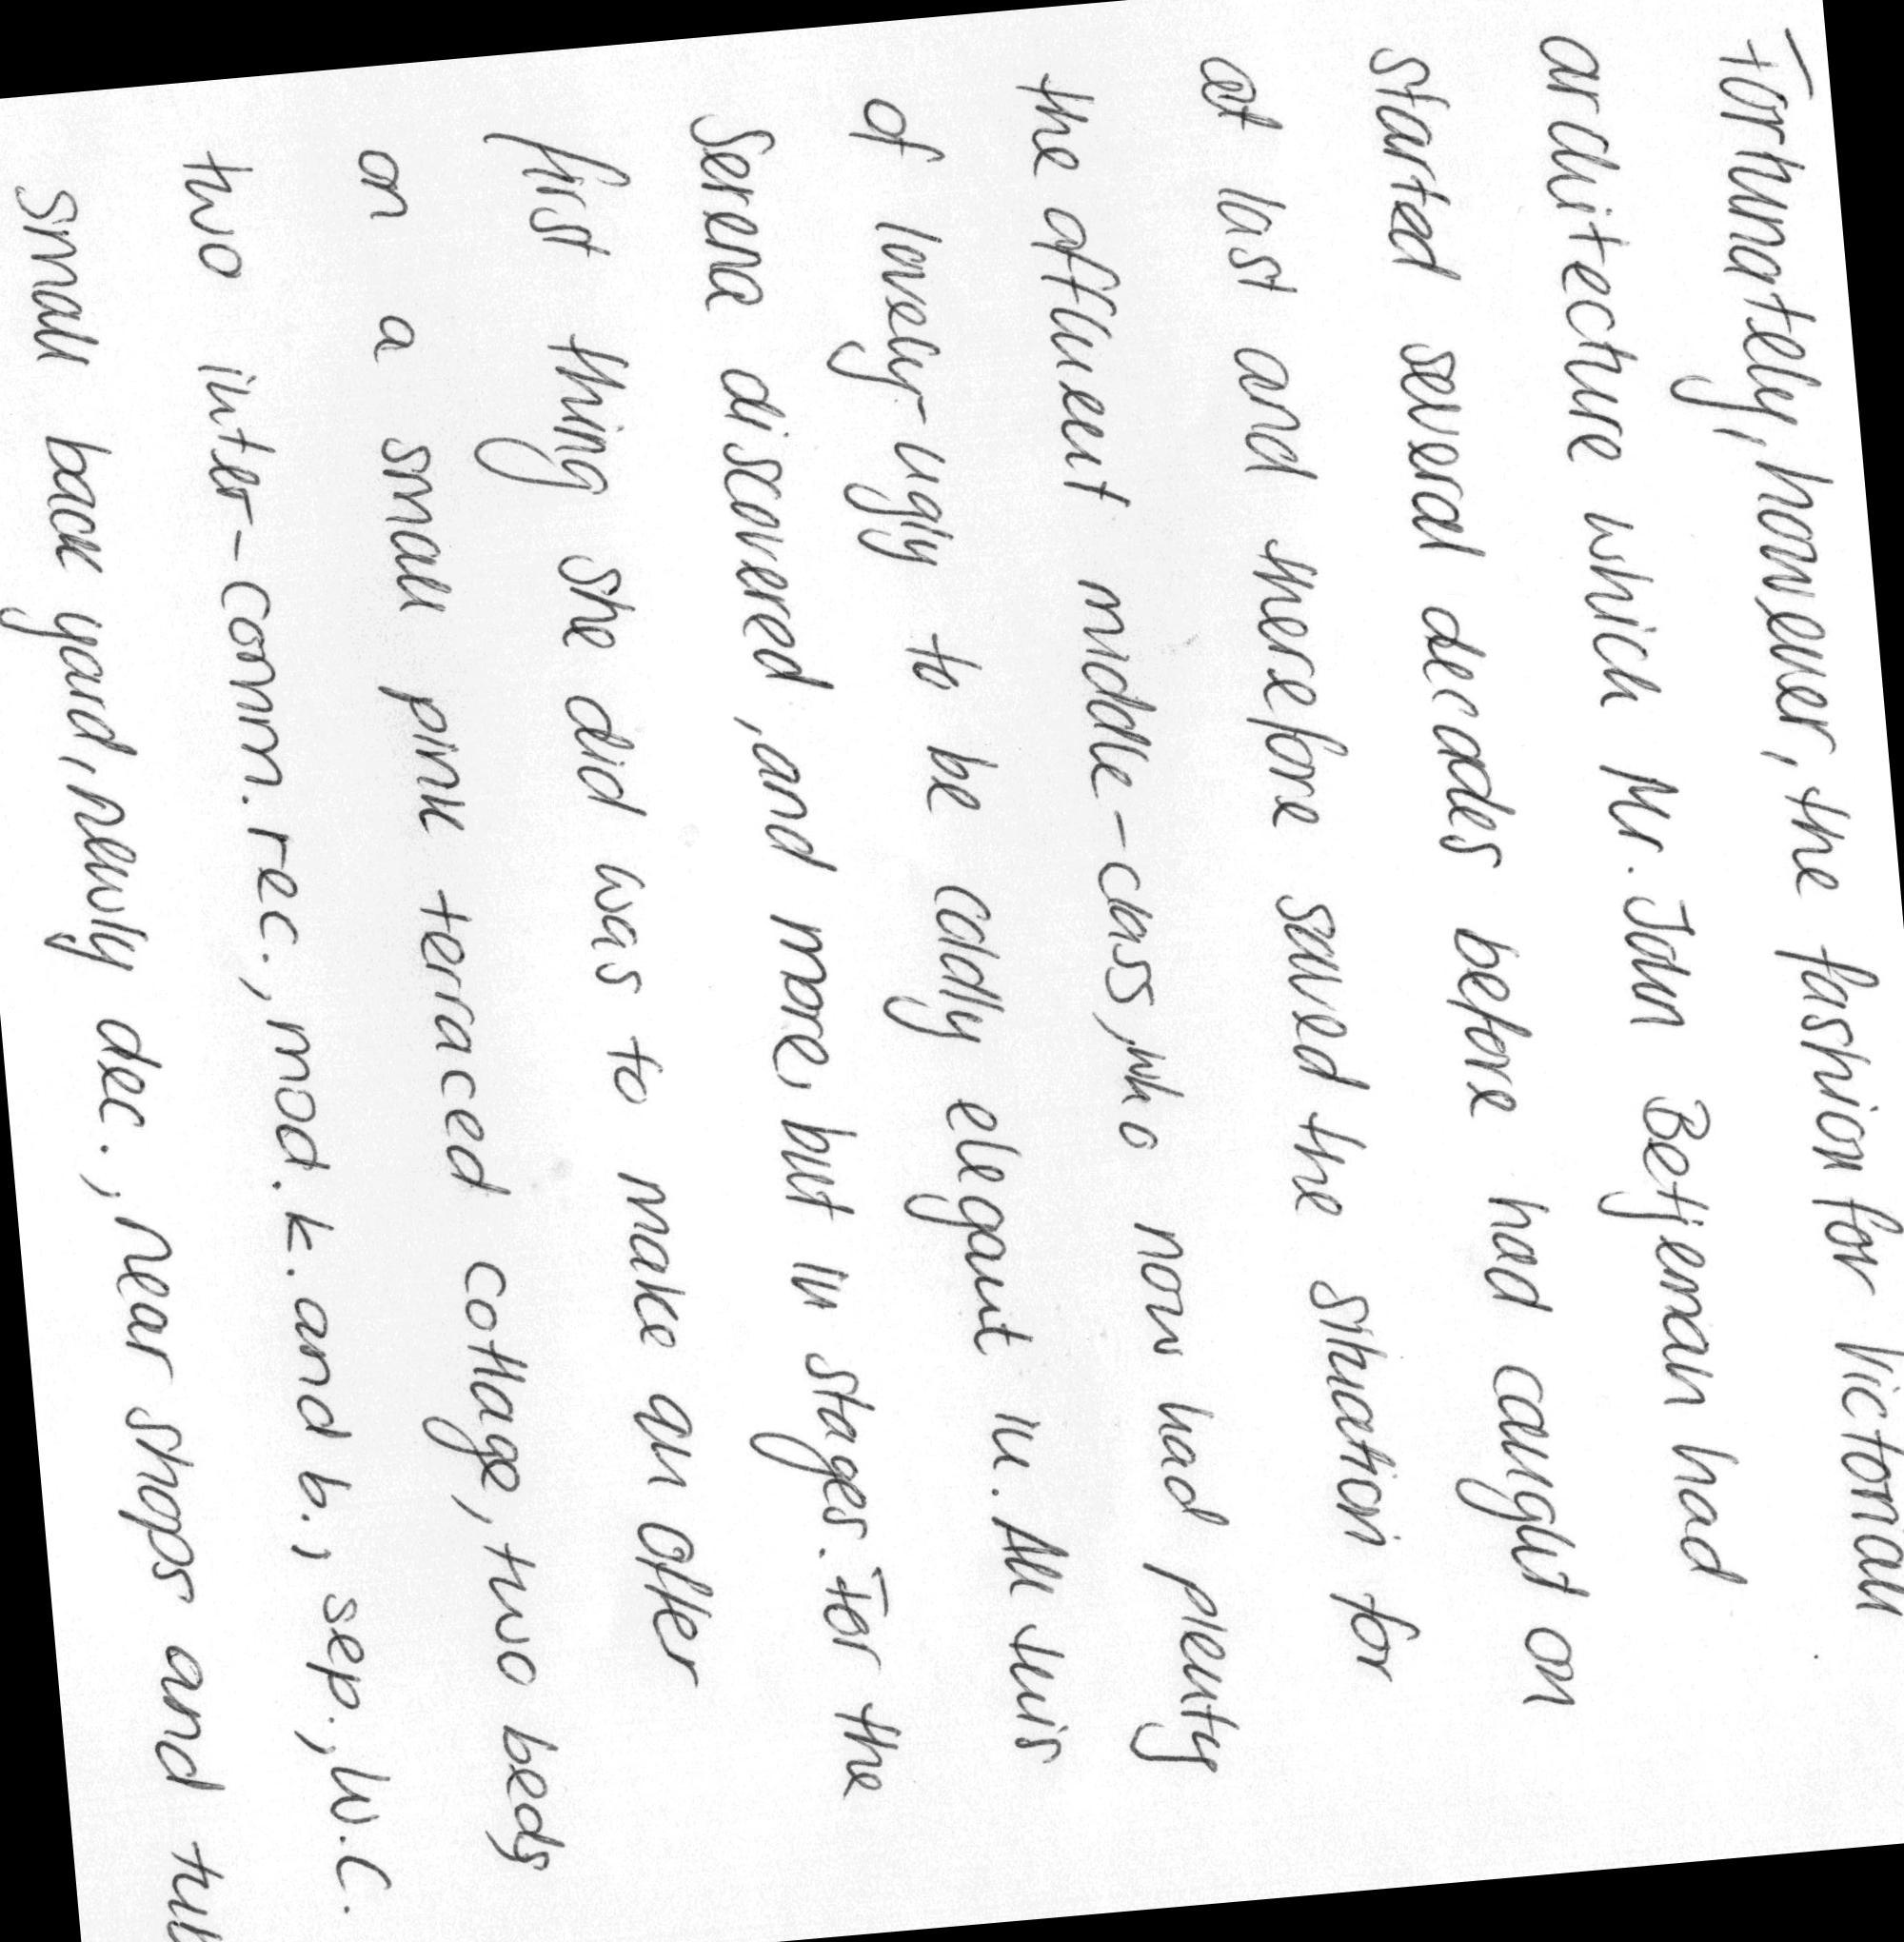 Fortunately, however, the fashion for Victorian
architecture which Mr. John Betjeman had
started several decades before had caught on
at last and therefore saved the situation for
the affluent middle-class, who now had plenty
of lovely-ugly to be oddly elegant in. All this
Serena discovered, and more, but in stages. For the
first thing she did was to make an offer
on a small pink terraced cottage, two beds,
two inter-comm. rec., mod. k. and b., sep., W.C.
small back yard, newly dec., near shops and